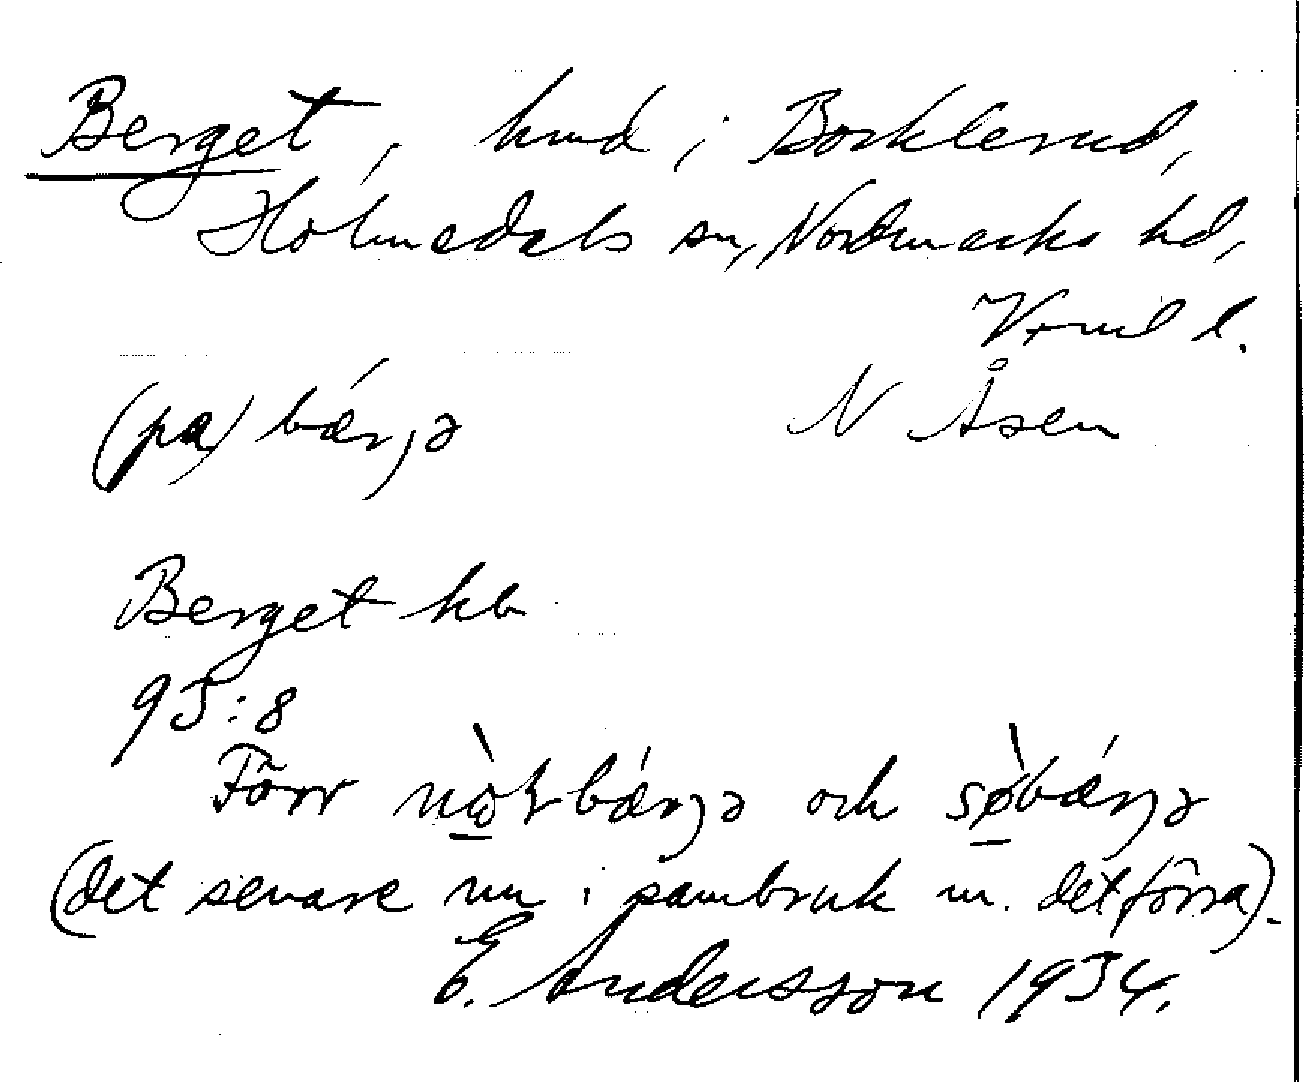 Berget, hmd i Bocklerud,
Holmedals sn, Nordmarks hd,
Vrml l.
(pa) bǽrjə N Åsen
Berget kb
95:8
Förr nὼɽbǽrjə och sø̀bǽrjə
(det senare nu i sambruk m. det förra).
E. Andersson 1934.